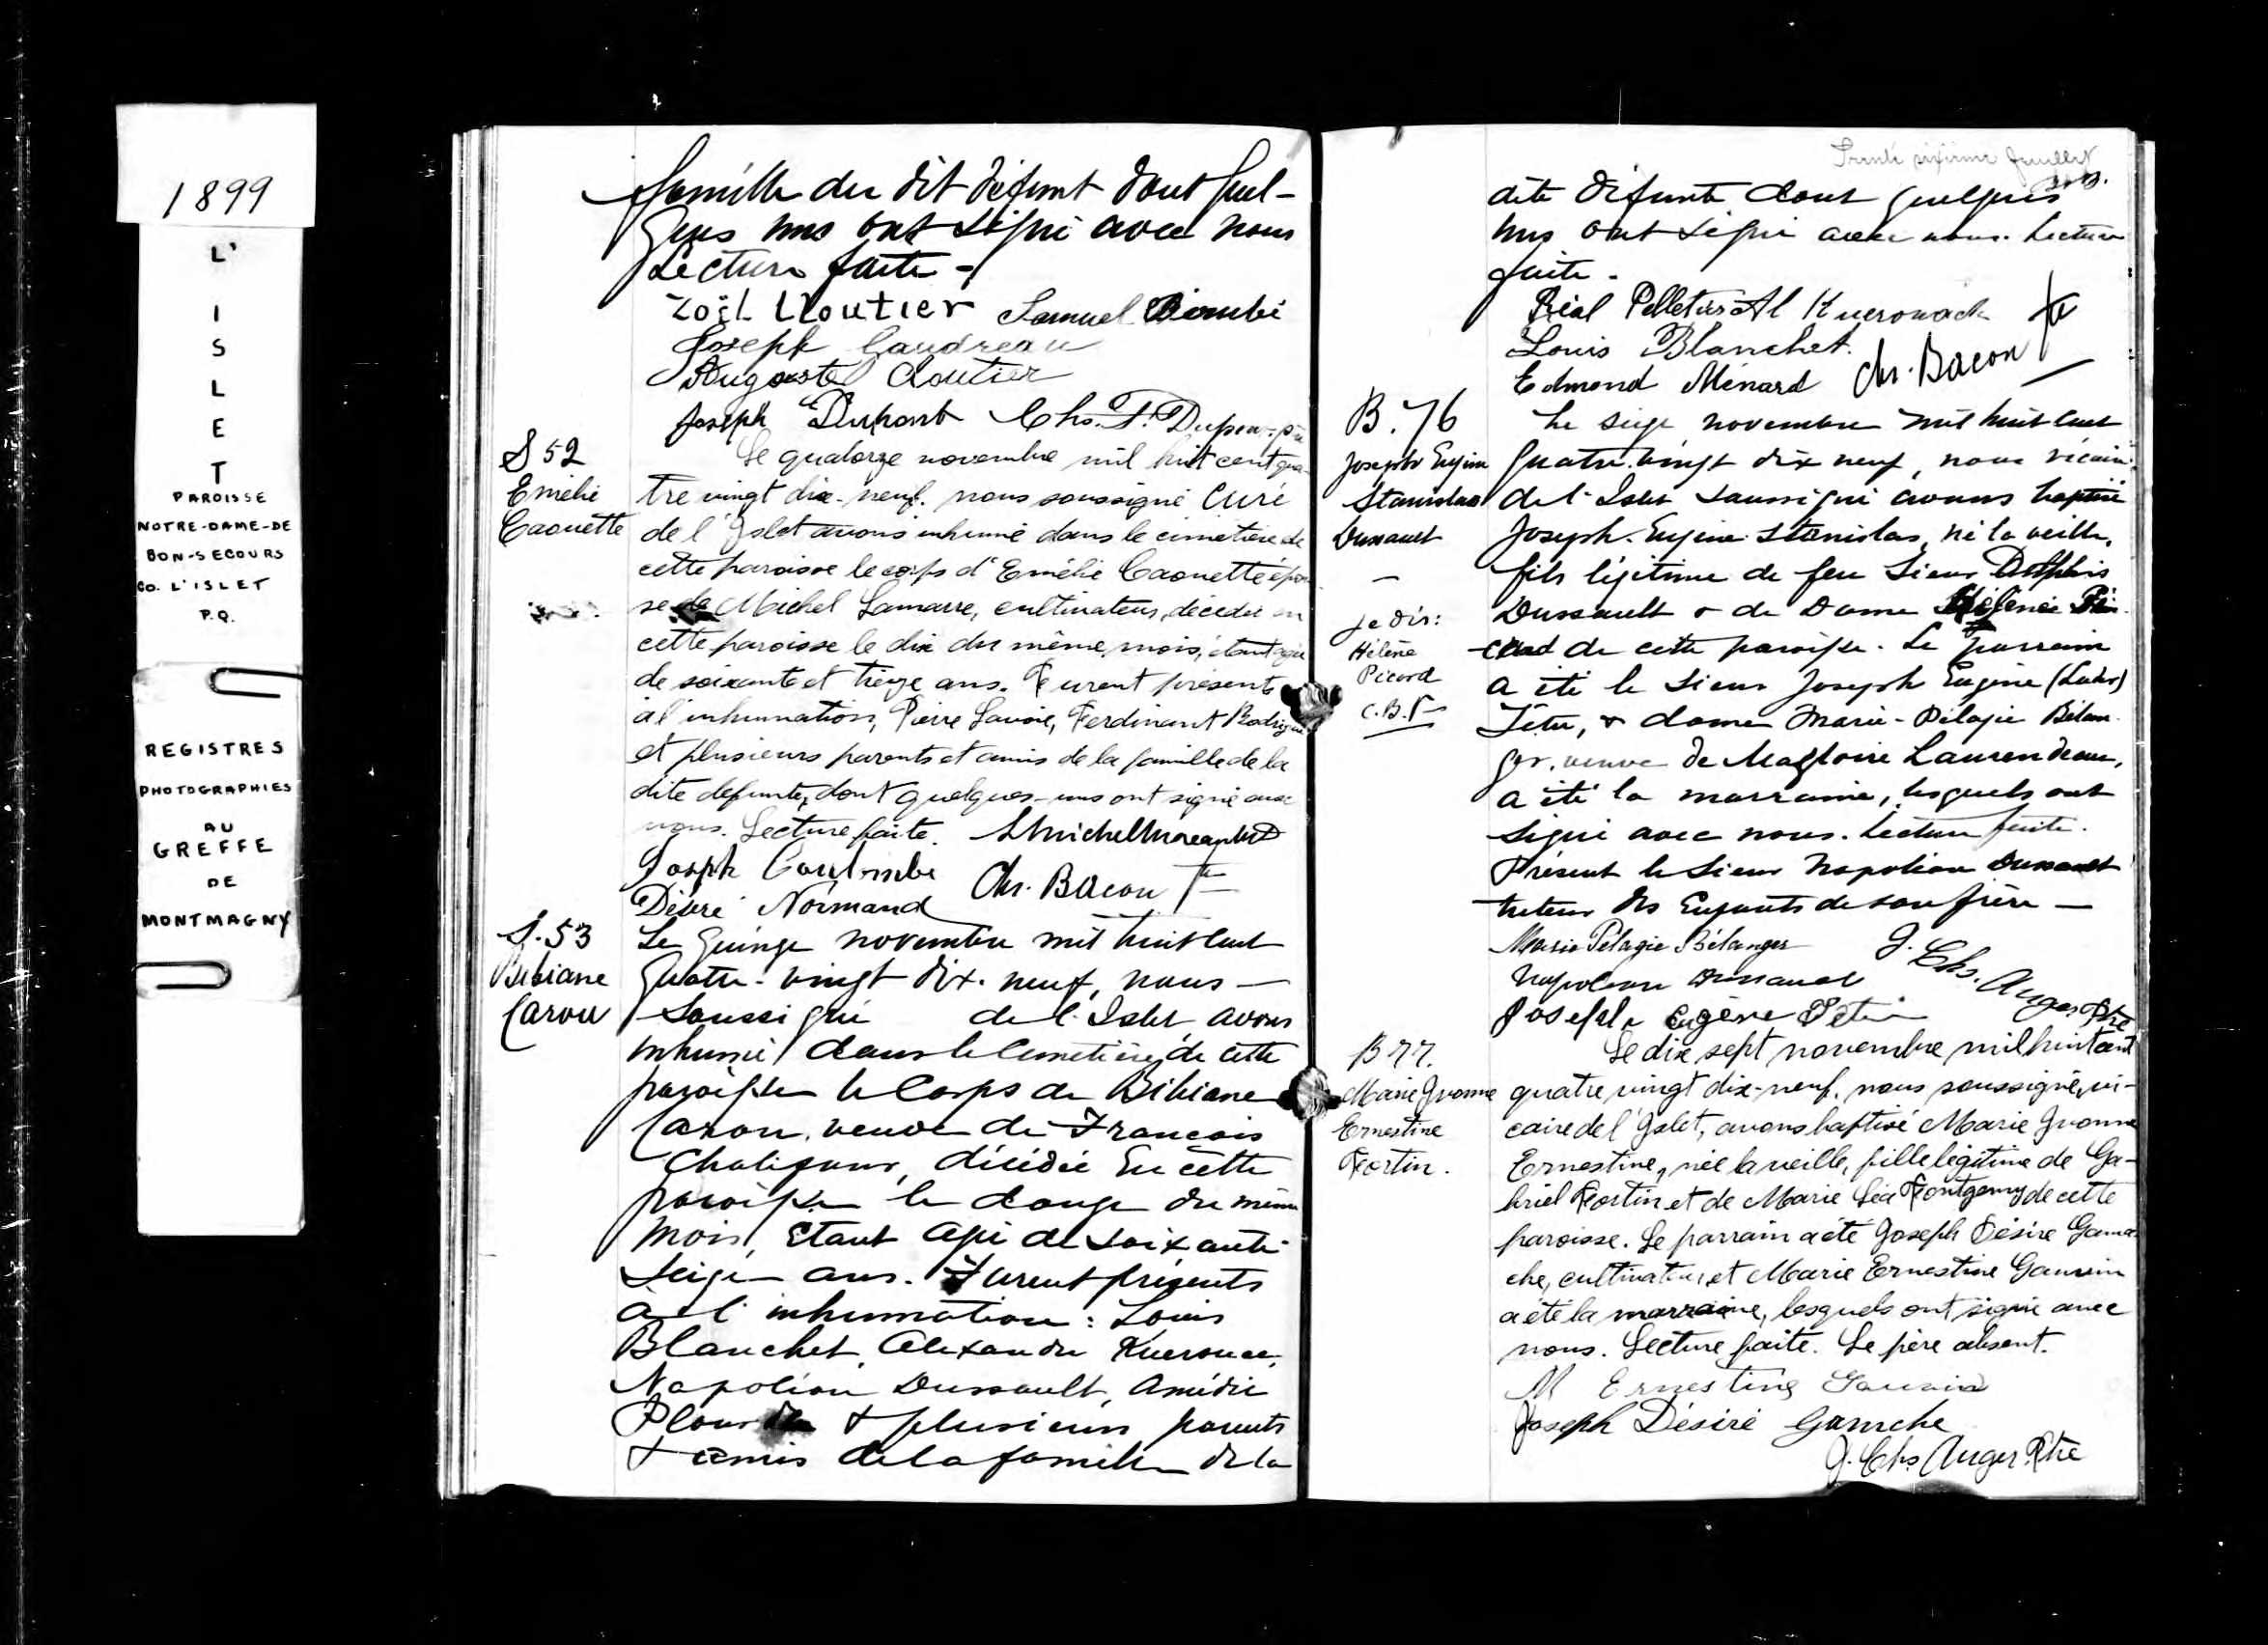 1899
L'
I
S
L
E
T
PAROISSE
NOTRE-DAME-DE
BON-SECOURS
CO. L'ISLET
P.Q.
REGISTRES
PHOTOGRAPHIES
AU
GREFFE
DE
MONTMAGNY
famille du dit défunt dont quel-
ques uns ont signé avec nous
Lecture faite -
Zoël Cloutier Samuel
Joseph Gaudreau
Auguste Cloutier
Joseph Dupont Chs. F. Dupon
S 52
Emélie
Caouette
Le quatorze novembre mil huit cent qua-
tre vingt dix-neuf, nous soussigné curé
de l'Islet avons inhumé dans le cimetière de
cette paroisse le corps d'Emélie Caouette épou-
se de Michel Lamarre, cultivateur, décédée en
cette paroisse le dix du même mois, étant agée
de soixante et treize ans. Furent présents
à l'inhumation, Pierre Lavoie, Ferdinant Rodrigue
et plusieurs parents et amis de la famille de la
dite defunte, dont quelques-uns ont signé avec
nous. Lecture faite.
Joseph Coulombe Chs. Bacon
Désiré Normand
S. 53
Bibiane
Caron
Le quinze novembre mil huit cent
quatre-vingt dix-neuf, nous —
soussigné de l'Islet avons
inhumé dans le cimetière de cette
paroisse le corps de Bibiane
Caron, veuve de François
Chalifour, décédée en cette
paroisse le douze du même
mois, étant agé de soixante
seize ans. Furent présents
à l'inhumation : Louis
Blanchet, Alexandre
Napoléon Dussault, Amédée
Plourde & plusieurs parents
& amis de la famille de la
Trente sixième feuillet
dite défunte dont quelques
uns ont signé avec nous. Lecture
faite -
Réal Pelletier Al Kuerouack
Louis Blanchet.
Edmond Ménard Chs. Bacon
B. 76
Joseph Eugène
Stanislas
Dussault
—
je dis:
Hélène
Picard
C.B.
Le seize novembre mil huit cent
quatre-vingt dix neuf, nous vicaire
de l'Islet soussigné avons baptisé
Joseph-Eugène-Stanislas, né la veille,
fils légitime de feu Sieur Delphis
Dussault & de Dame
de cette paroisse. Le parrain
a été le Sieur Joseph Eugène
Têtu, & dame Marie-Pélagie Bélan-
ger, veuve de Magloire Laurendeau,
a été la marraine, lesquels ont
signé avec nous. Lecture faite.
Présent le Sieur Napoléon Dussault
tuteur des Enfants de son frère —
Marie Pélagie Bélanger
Napoléon Dussault J. Chs. Auger Ptre
Joseph Eugène Tetu
B 77.
Marie Yvonne
Ernestine
Fortin.
Le dix sept novembre mil huit cent
quatre vingt dix-neuf, nous soussigné, vi-
caire de l'Islet, avons baptisé Marie Yvonne
Ernestine, née la veille, fille légitime de Ga-
briel Fortin et de Marie Léa de cette
paroisse. Le parrain a été Joseph Désiré Gama-
che, cultivateur, et Marie Ernestine Gauvin
a été la marraine, lesquels ont signé avec
nous. Lecture faite. Le père absent.
M Ernestine Gauvin
Joseph Désiré Gamche
J. Chs Auger Ptre